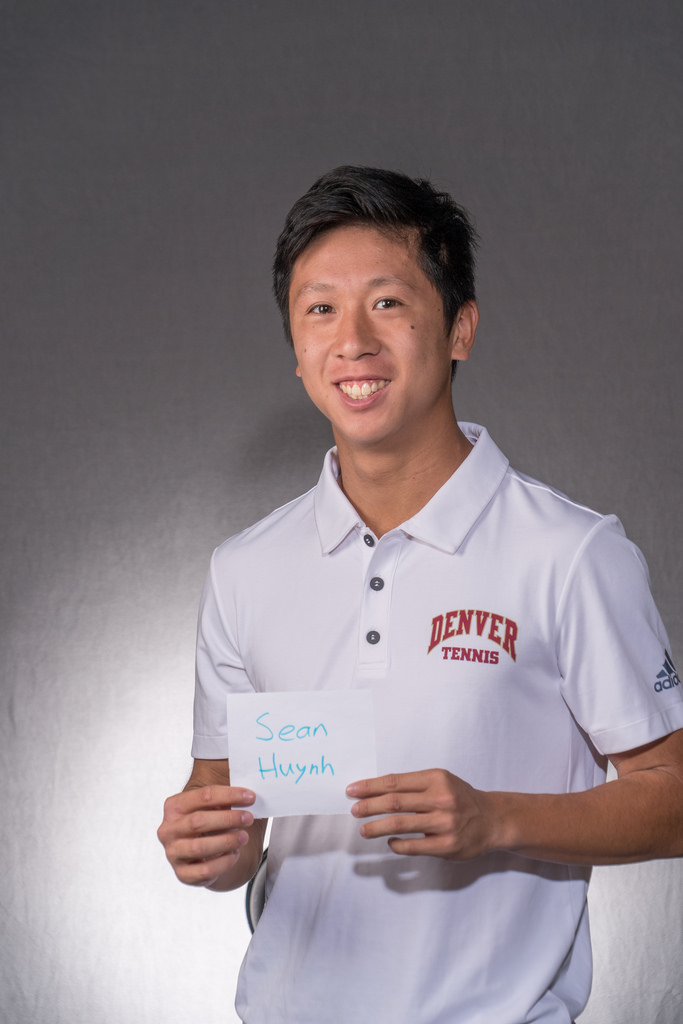 DENVER
TENNIS
adidas
Sean
Huynh